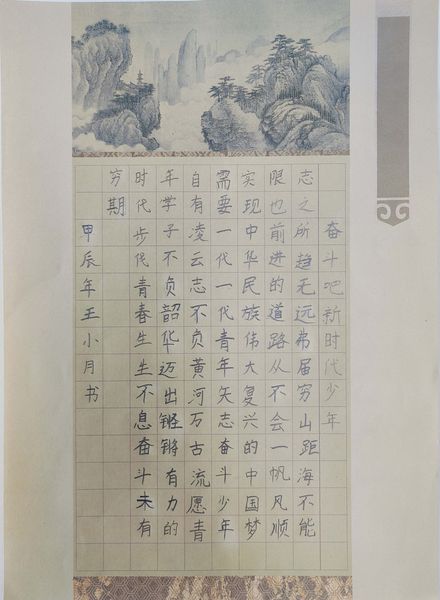 奋斗吧新时代少年
志之所趋无远弗届穷山距海不能
限也前进的道路从不会一帆风顺
实现中华民族伟大复兴的中国梦
需要一代一代青年矢志奋斗少年
自有凌云志不负黄河万古流愿青
年学子不负韶华迈出铿锵有力的
时代步伐青春生生不息奋斗未有
穷期
甲辰年王小月书